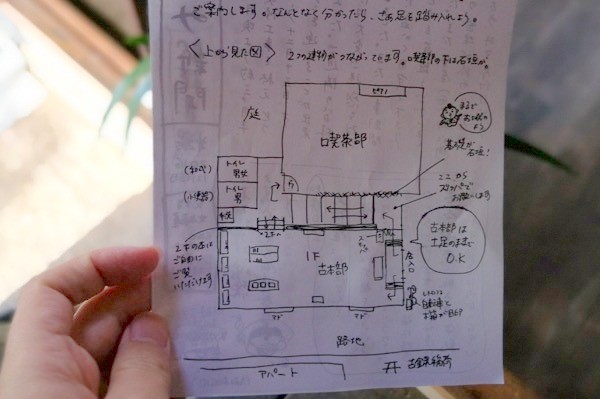 ご案内します。なんとなく分かったら、さあ足を踏み入れよう。
〈上から見た図〉 2つの建物がつながっています。喫茶部の下は石垣が。
ピアノ
庭
喫茶部
まるで
お城の
よう
基礎が
石垣!
(和式)
トイレ
男女
(小便器)
トイレ
男
ここから
スリッパで
お願いします
2本の庭は
ご自由に
ご覧
いただけます
1F
古本部
古本部は
土足のままで
O.K
店入口
レトロな
自転車と
マド
マド
路地
アパート
古録稲荷